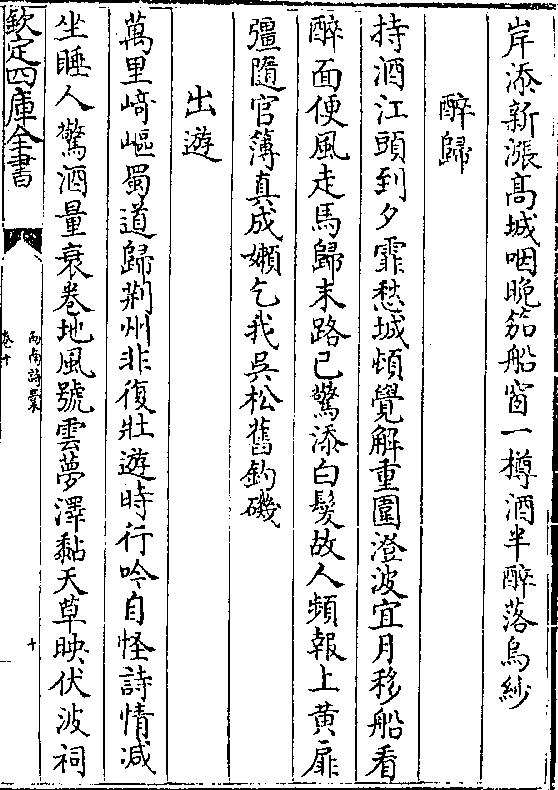 岸添新漲髙城咽晩笳船窗一樽酒半醉落烏紗
醉歸
持酒江頭到夕霏愁城頓覺解重圍澄波宜月移船看
醉面便風走馬歸末路已驚添白髮故人頻報上黄扉
彊隨官簿真成嬾乞我吳松舊釣磯
出遊
萬里﨑嶇蜀道歸荆州非復壯遊時行吟自怪詩情减
坐睡人驚酒量衰卷地風號雲夢澤黏天草映伏波祠
欽定四庫全書
卷十
十